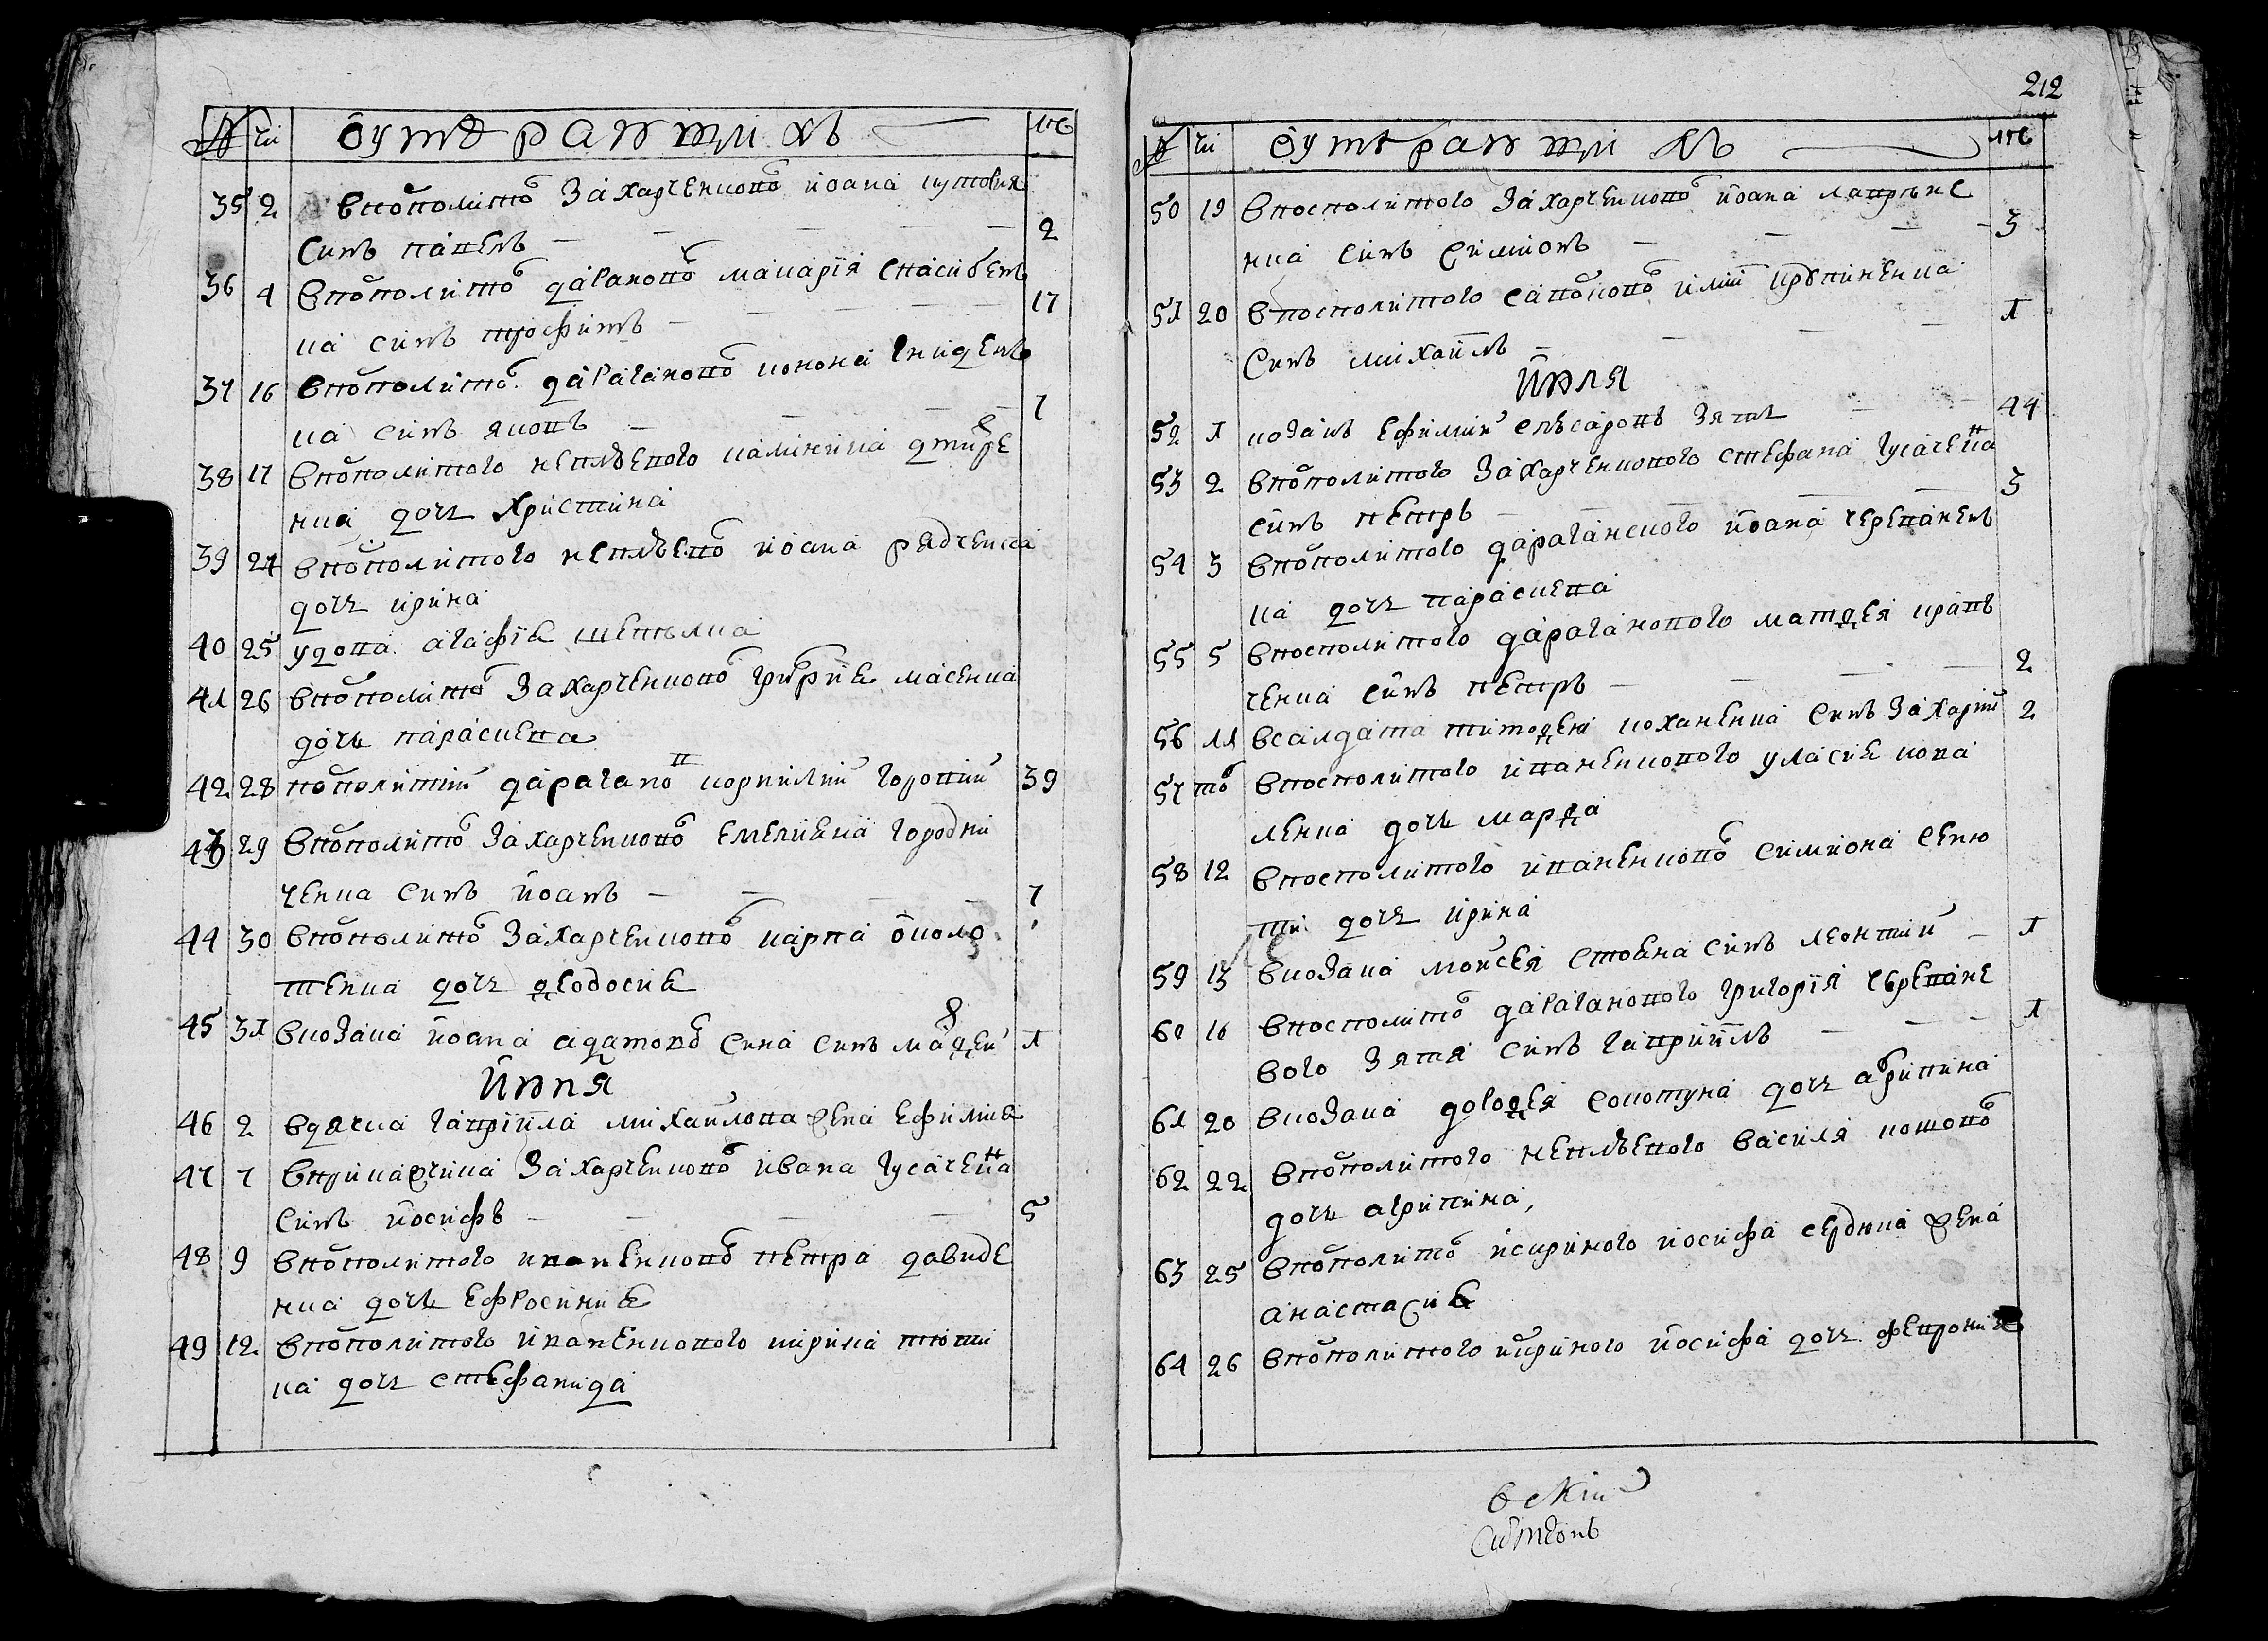 № чи О умераю щи хъ лѣ
35 2 В посполито Захарченкова Иоана кутовия
синъ павелъ — 2
36 4 В посполито даганово макарія спасибен
ка синъ трофимъ — 17
37 16 В посполито дараганово конона гниден
ка синъ яковъ — 7
38 17 В посполитого неплѣевого калиника дмитре
нка дочь христина
39 24 В посполитого неплѣево иоана радченка
дочь ирина
40 25 удова агафія
41 26 В посполито Захарченково григория масенка
дочь параскева
42 28 посполитий дарагано корнилий горовий 39
43 29 В посполито Захарченково емелияна городни
ченка синъ иоанъ — 7
44 30 В посполито Захарченково карпа около
тенка дочь ѳеодосия
45 31 В козака иоана сина синъ маѳей 1
июня
46 2 В дячка гавриила михаилова жена ефимия
47 7 В прикащика Захарченково ивана гусаченка
синъ иосифъ — 5
48 9 В посполитого иваненково петра давиде
нка дочь ефросиния
49 12 В посполитого иваненкового кирика тюти
ка дочь стефанида
212
№ чи О умераю щи хъ лѣ
50 19 В посполитого Захарченково иоана лаврѣне
нка синъ симионъ — 3
51 20 В посполитого илии крупиненка
синъ михаилъ — 1
июля
52 1 козакъ ефимий слѣсаровъ зять — 44
53 2 В посполитого Захарченкового стефана гусаченка
синъ петръ — 3
54 3 В посполитого дараганского иоана черепанен
ка дочь параскева
55 5 В посполитого дараганового матѳея крав
ченка синъ петръ — 2
56 11 В салдата тимоѳея коханенка синъ захарий 2
57 то В посполитого иваненкового уласия кова
ленка дочь марѳа
58 12 В посполитого иваненково симиона сеню
ти дочь ирина
59 13 В козака моисея стояна синъ леонтий — 1
60 16 В посполито дараганового григория черепане
вого зятя синъ гавриилъ — 1
61 20 В козака дороѳея сокотуна дочь агрипина
62 22 В посполитого неплѣевого василя
дочь агрипина,
63 25 В посполито искриного иосифа сердюка жена
анастасия
64 26 В посполитого искриного иосифа дочь февронія